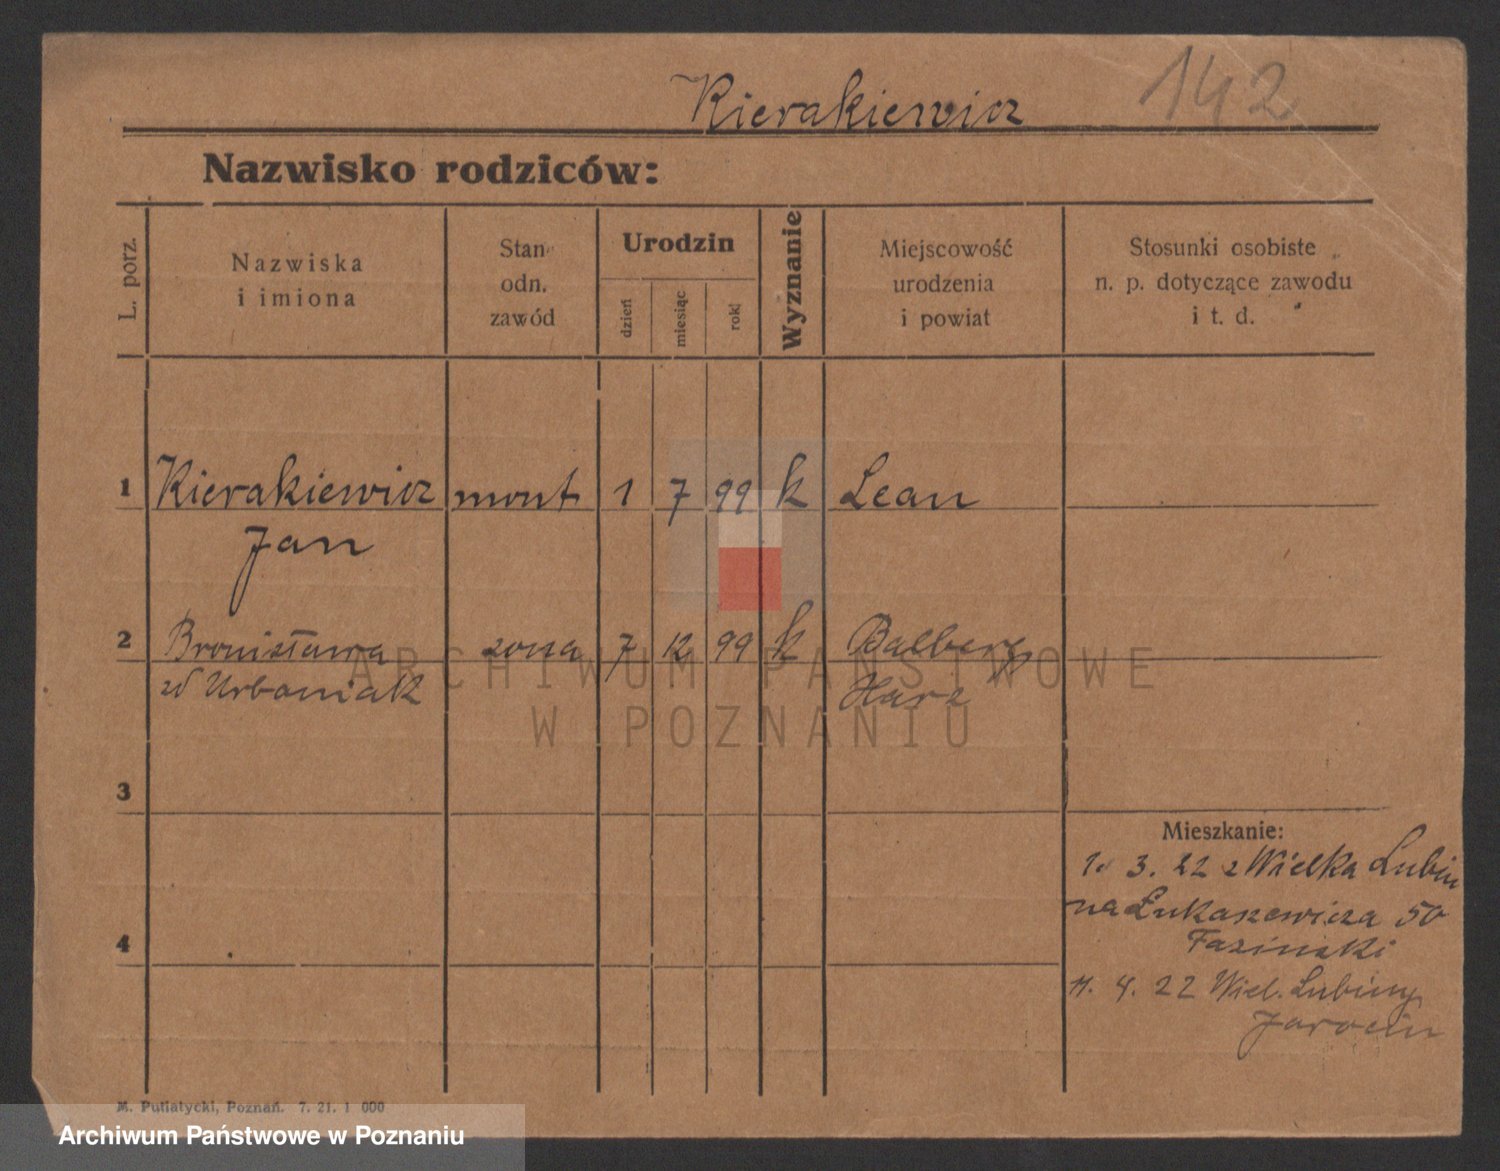 142
Kierakiewicz
Nazwisko rodziców:
L. porz.
Nazwiska
i imiona
Stan
odn.
zawód
Urodzin
dzień
miesiąc
rok
Wyznanie
Miejscowość
urodzenia
i powiat
Stosunki osobiste
n. p. dotyczące zawodu
i t. d.
1 Kierakiewicz mont 1 7 99 k Lean
Jan
2 Bronisława żona 7 12 99 k Balberg
zd Urbaniak Harz
ARCHIWUM PAŃSTWOWE
W POZNANIU
3
Mieszkanie:
3. 22 z Wielka Lubin
na Łukaszewicza 50
Fasinski
4
11. 4. 22 Wiel. Lubiny
Jarocin
M. Putiatycki, Poznań. 7. 21. 1 000
Archiwum Państwowe w Poznaniu